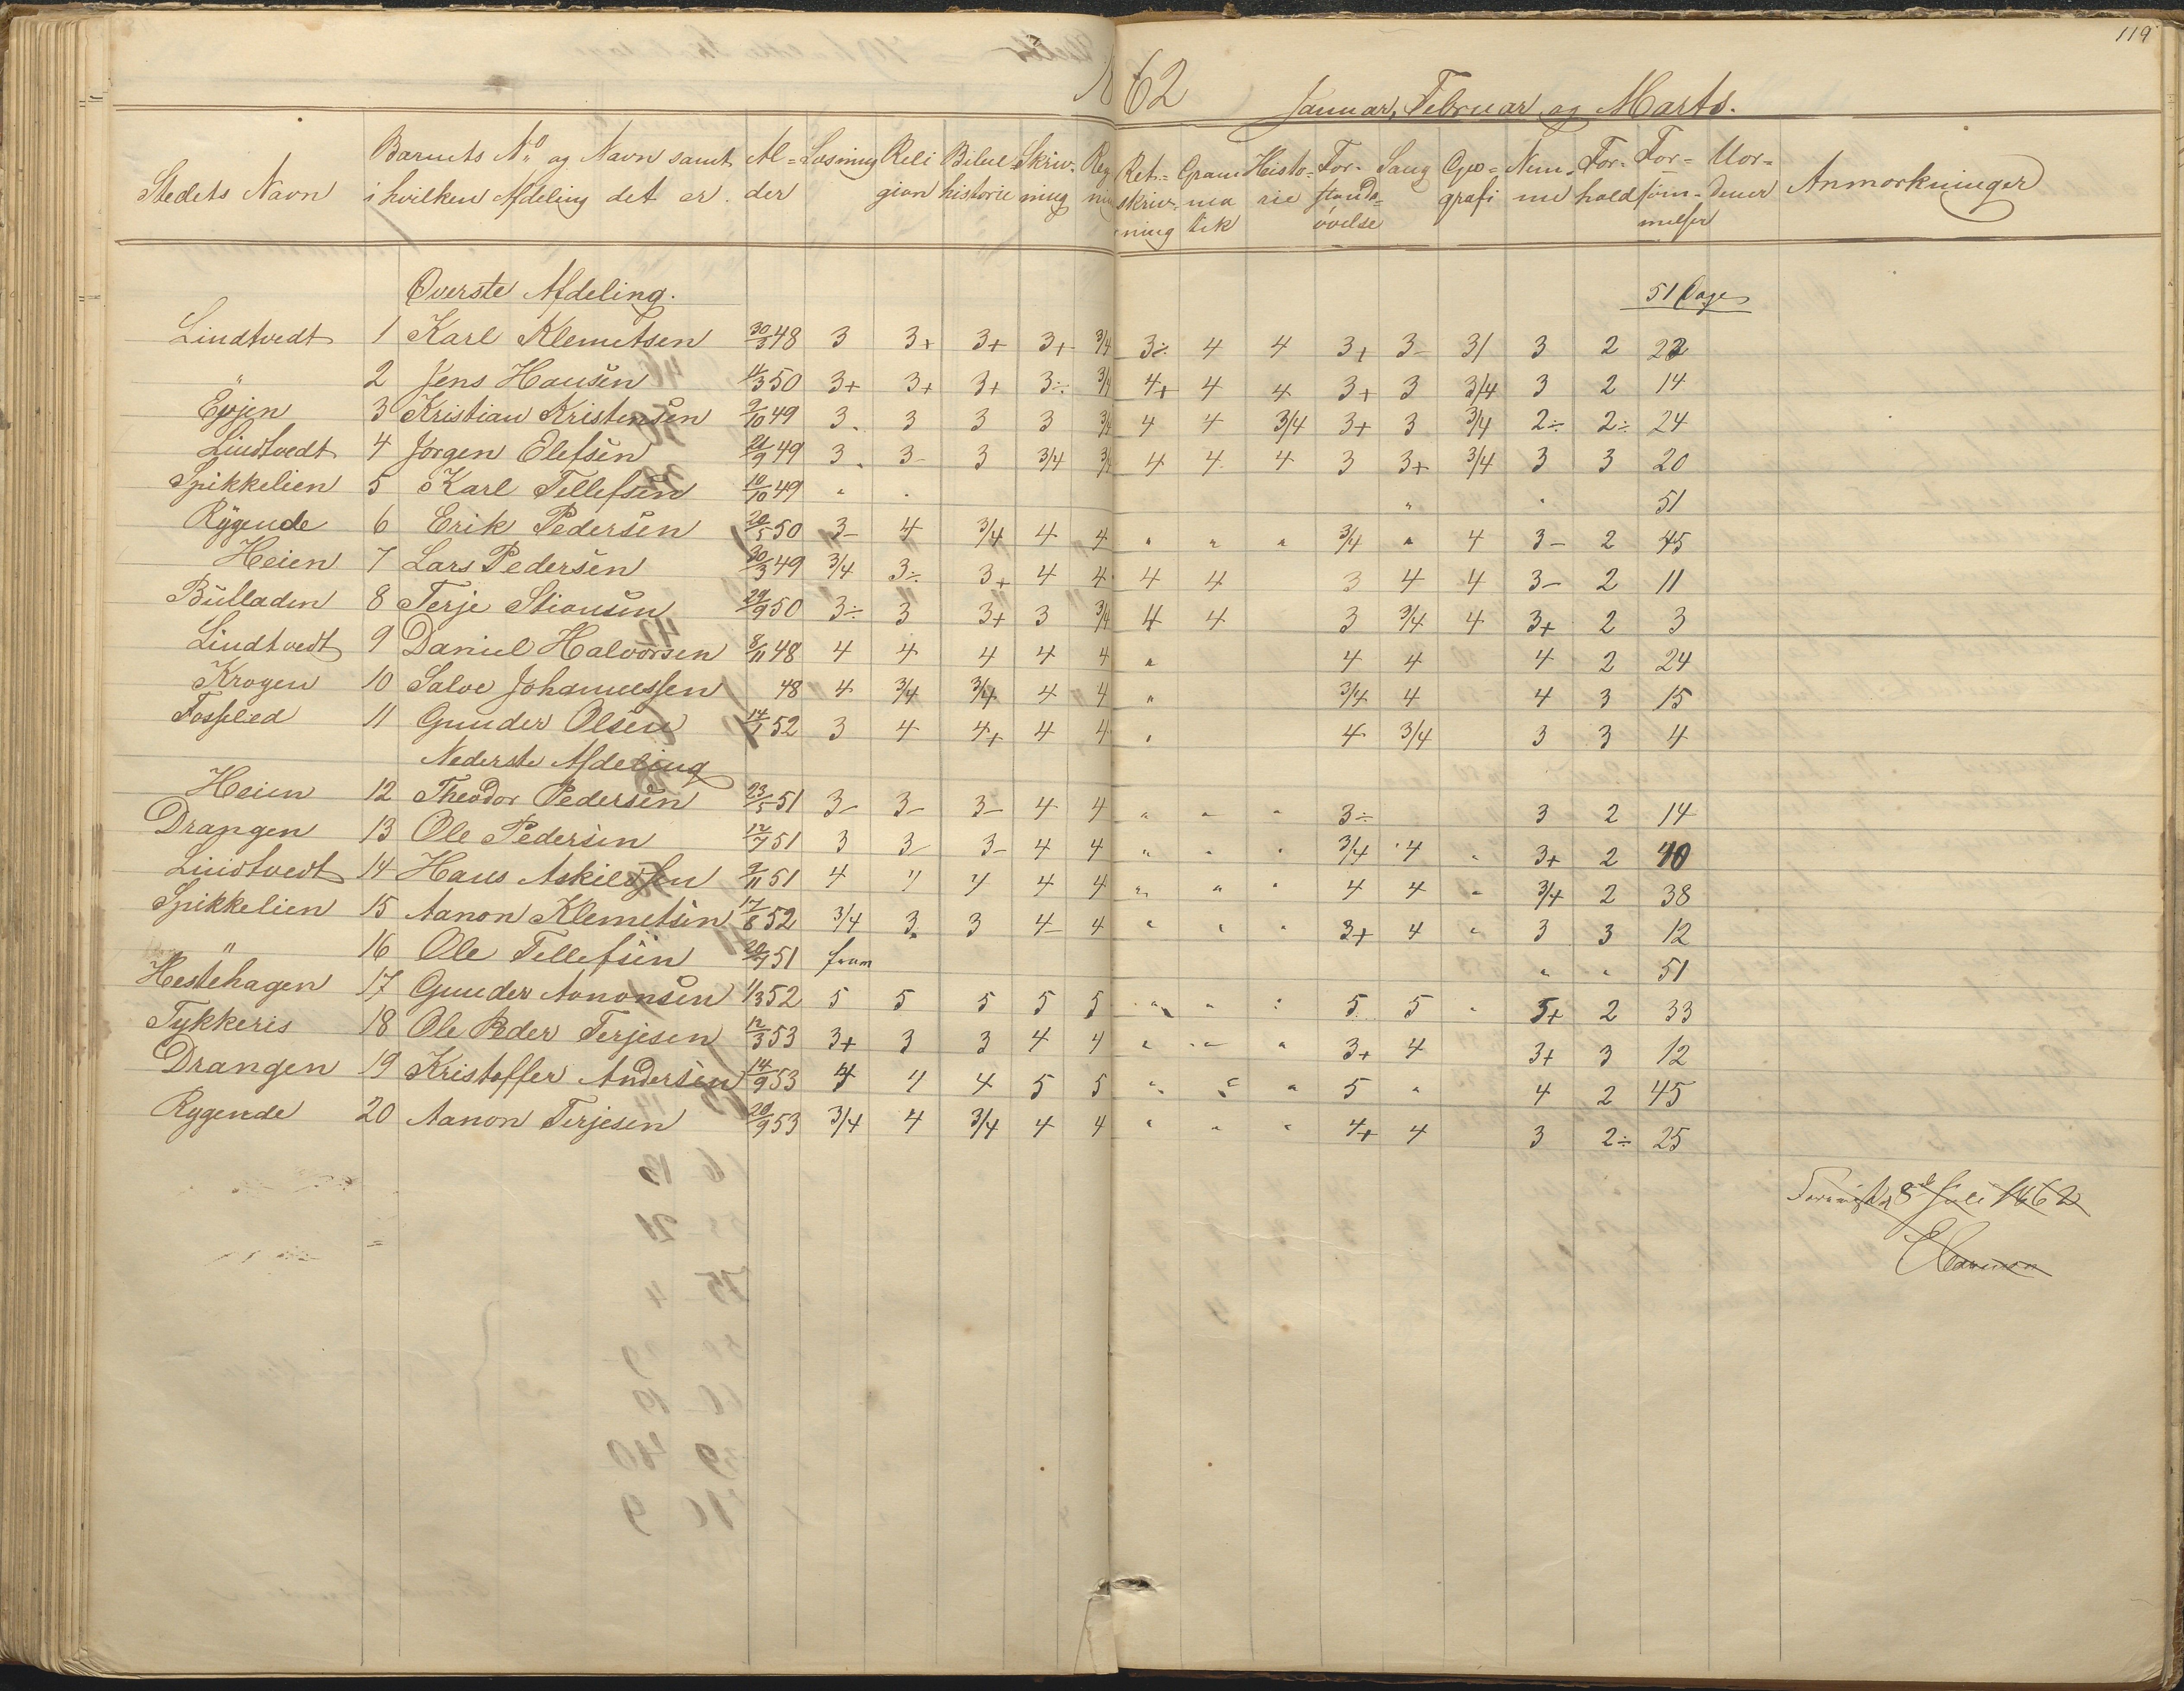 119
62 Januar, Februar og Marts.
Stedets Navn | Barnets No og Navn samt i hvilken Afdeling det er. | Al=der | Læsning | Religion | Bibelhistorie | Skrivning | Reg ning | Ret=skriv=ning | Gramma tik | Histo=rie | For-stands=øvelse | Sang | Geo=grafi | Nem=me | For-hold | For=søm=melser | Mor=dener | Anmærkninger
Øverste Afdeling. 51 Dage
Lindtvedt 1 Karl Klemetsen 30/3 48 3 3+ 3+ 3+ 3/4 3÷ 4 4 3+ 3- 3/ 3 2 22
" 2 Jens Hansen 4/3 50 3+ 3+ 3+ 3÷ 3/4 4+ 4 4 3+ 3 3/4 3 2 14
Evjen 3 Kristian Kristensen 2/10 49 3 3 3 3 3/4 4 4 3/4 3+ 3 3/4 2÷ 2÷ 24
Lindtvedt 4 Jørgen Olefsen 21/9 49 3 3- 3 3/4 3/4 4 4 4 3 3+ 3/4 3 3 20
Spikkelien 5 Karl Tellefsen 10/10 49 " " " " 51
Rygende 6 Erik Pedersen 20/5 50 3- 4 3/4 4 4 " " " 3/4 " 4 3- 2 45
Heien 7 Lars Pedersen 30/3 49 3/4 3÷ 3+ 4 4 4 4 3 4 4 3- 2 11
Bulladen 8 Terje Stiansen 29/9 50 3÷ 3 3+ 3 3/4 4 4 3 3/4 4 3+ 2 3
Lindtvedt 9 Daniel Halvorsen 8/11 48 4 4 4 4 4 " 4 4 4 2 24
Krogen 10 Salve Johannessen 48 4 3/4 3/4 4 4 " 3/4 4 4 3 15
Fosselied 11 Gunder Olsen 14/1 52 3 4 4+ 4 4 " 4 3/4 3 3 4
Nederste Afdeling
Heien 12 Theodor Pedersen 23/5 51 3- 3- 3- 4 4 " " " 3÷ 3 2 14
Drangen 13 Ole Pedersen 12/7 51 3 3- 3- 4 4 " " " 3/4 4 " 3+ 2 40
Lindtvedt 14 Hans Askildsen 9/11 51 4 4 4 4 4 " " " 4 4 " 3/4 2 38
Spikkelien 15 Aanon Klemetsen 17/8 52 3/4 3 3 4 4 " " " 3+ 4 " 3 3 12
" 16 Ole Tellefsen 20/7 51 " " 51
Hestehagen 17 Gunder Aanonsen 1/3 52 5 5 5 5 5 " " " 5 5 " 5+ 2 33
Tykkeris 18 Ole Peder Terjesen 12/3 53 3+ 3 3 4 4 " " " 3+ 4 3+ 3 12
Drangen 19 Kristoffer Andersen 14/9 53 4 4 4 5 5 " " " 5 " 4 2 45
Rygende 20 Aanon Terjesen 20/9 53 3/4 4 3/4 4 4 " " " 4+ 4 3 2÷ 25
8de Juli 1862